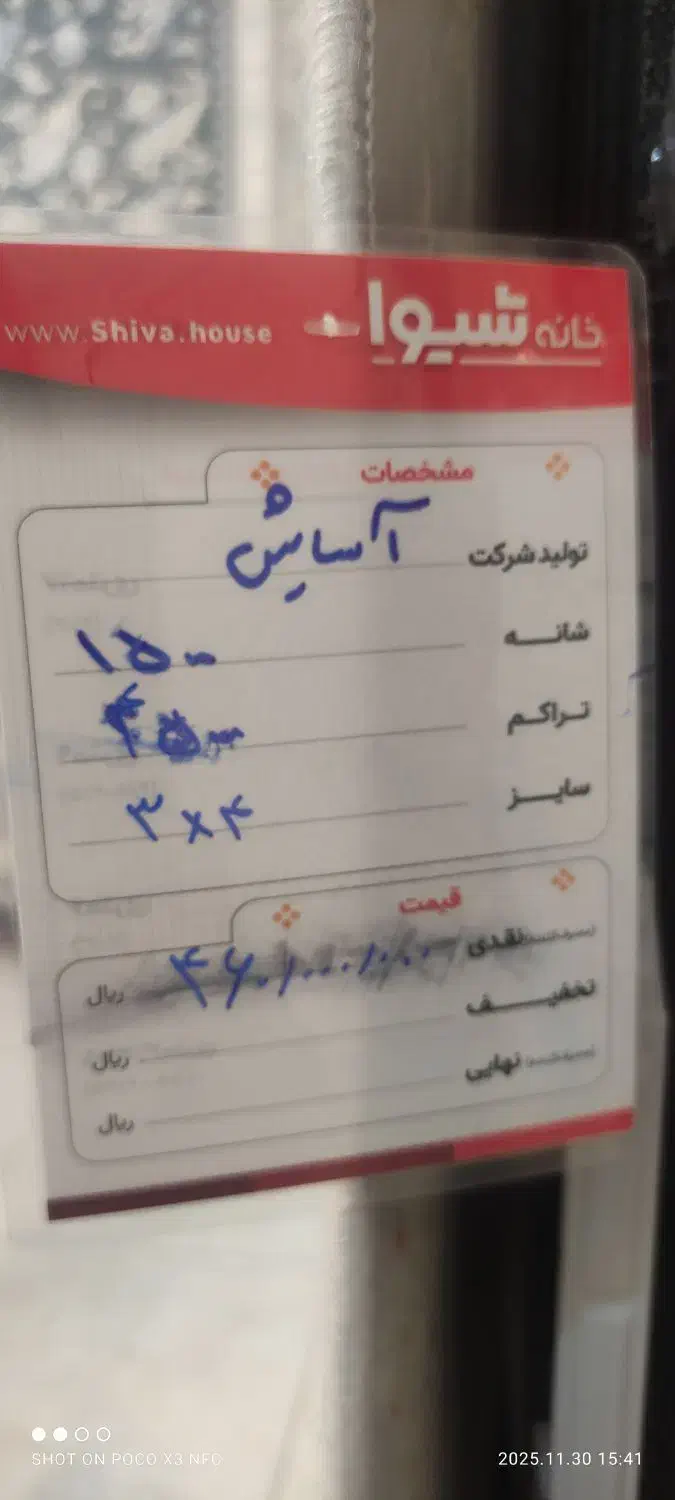 خانه شیوا
www.Shiva.house
مشخصات
تولید شرکت آسایش
شانه ۱۵۰۰
تراکم ۴۵۰۰
سایز ۳ × ۴
قیمت
نقدی ۴۶۰/۰۰۰/۰۰۰ ریال
تخفیف ریال
نهایی ریال
SHOT ON POCO X3 NFC
2025.11.30 15:41